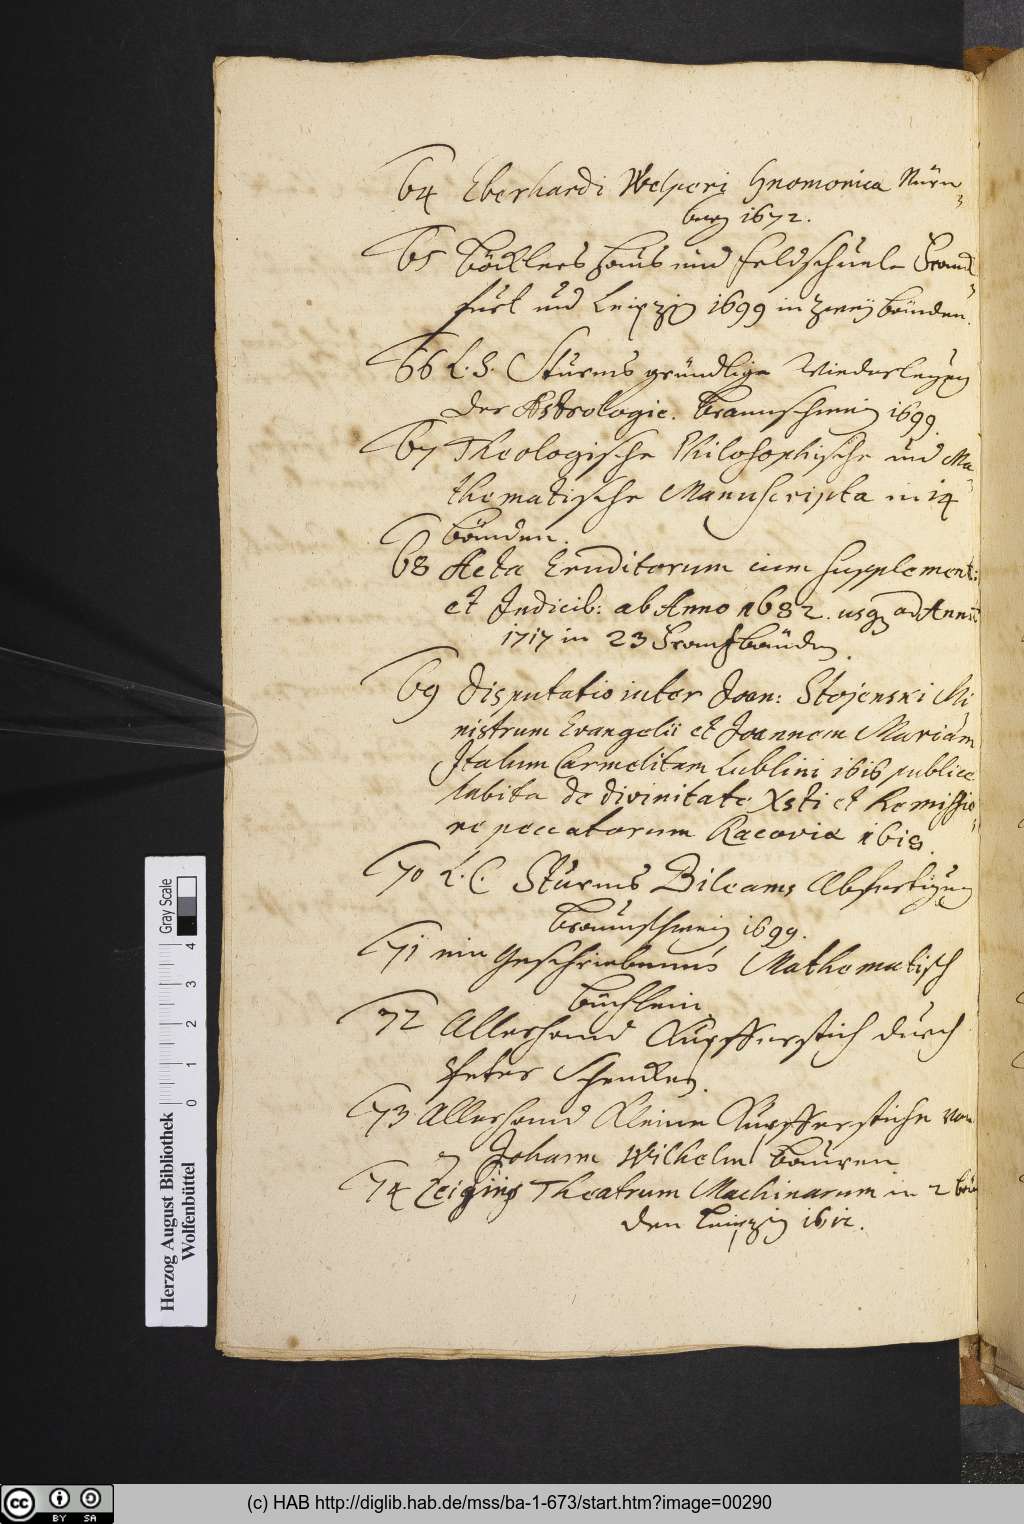 64 Eberhardi Welperi Gnomonica Nürn
berg 1672.
65 Böcklers Hauß und Feldschuele Franck
furt und Leipzig 1699 in zweÿ bänden.
66 L. C. Sturms gründlige Wiederlegung
der Astrologie. Braunschweig 1699.
67 Theologische Philosophische und Ma
thematische Manuscripta in 14
bänden.
68 Acta Eruditorum cum supplement:
et Indicib: ab Anno 1682. usq ad Annū
1717 in 23 Frantzbänden.
69 Disputatio inter Joan: Stojenski Mi
nistrum Evangelii et Joannem Mariam
Italum Carmelitam Lublini 1616 publice
habita de divinitate Xsti et Remissio
ne peccatorum Racoviæ 1618.
70 L. C. Sturms Bileams Abfertigung
Braunschweig 1699.
71 ein Geschriebenes Mathematisch
büchlein.
72 Allerhand Kupfferstich durch
Peter Schencken.
73 Allerhand Kleine Kupfferstiche von
Johann Wilhelm Bauren.
74 Zeigings Theatrum Machinarum in 2 bän
den Leipzig 1612.
Herzog August Bibliothek
Wolfenbüttel
Gray Scale
0 1 2 3 4
cc BY SA
(c) HAB http://diglib.hab.de/mss/ba-1-673/start.htm?image=00290